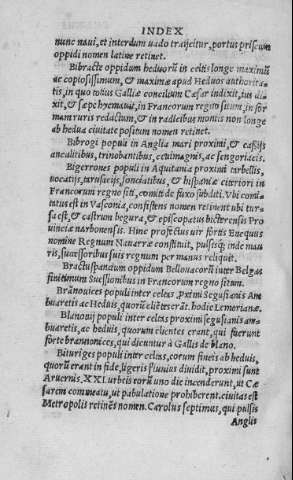 INDEX
nunc naui, et interdum uado traijcitur, portus priscum
oppidi nomen latine retinet.
Bibracte oppidum heduorũ in celtis longe maximũ
ac copiosissimum, & maximæ apud Heduos authorita-
tis, in quo totius Galliæ concilium Cæsar indixit, ius di-
xit, & sæpe hyemauit, in Francorum regno situm, in for
mam ruris redactum, & in radicibus montis non longe
ab hedua ciuitate positum nomen retinet.
Bibrogi populi in Anglia mari proximi, & cassijs
ancalitibus, trinobantibus, cetimagnis, ac sengoriacis.
Bigerrones populi in Aquitania proximi tarbellis,
uocatijs, tarusatijs, sontiatibus, & hispaniæ citeriori in
Francorum regno siti, comiti de fuxo subditi. Vbi comi
tatus est in Vasconia, confistens nomen retinent ubi tur
sa est, & castrum begura, & episcopatus bicterensis Pro
uinciæ narbonensis. Hinc profectus uir fortis Enequs
nomine Regnum Nauarræ constituit, pulsisq; inde mau
ris, successoribus suis regnum per manus reliquit.
Bractuspantum oppidum Bellouacorũ inter Belgas
finitimum Suessionibus in Francorum regno situm.
Brãnouices populi inter celtas, pximi Segusianis Am
buaretis ac Heduis, quorũ cliẽtes erãt. hodie Lemerianæ.
Blanouij populi inter celtas proximi segusianis am-
buaretis, ac heduis, quorum clientes erant, qui fuerunt
forte brannonices, qui dicuntur à Gallis de blano.
Bituriges populi inter celtas, eorum fineis ab heduis,
quorũ erant in fide, ligeris fluuius diuidit, proximi sunt
Aruernis. XXI. urbeis eorũ uno die incenderunt, ut Cæ
sarem commeatu, ut pabulatione prohiberent. ciuitas est
Metropolis retinẽs nomen. Carolus septimus, qui pulsis
Anglis